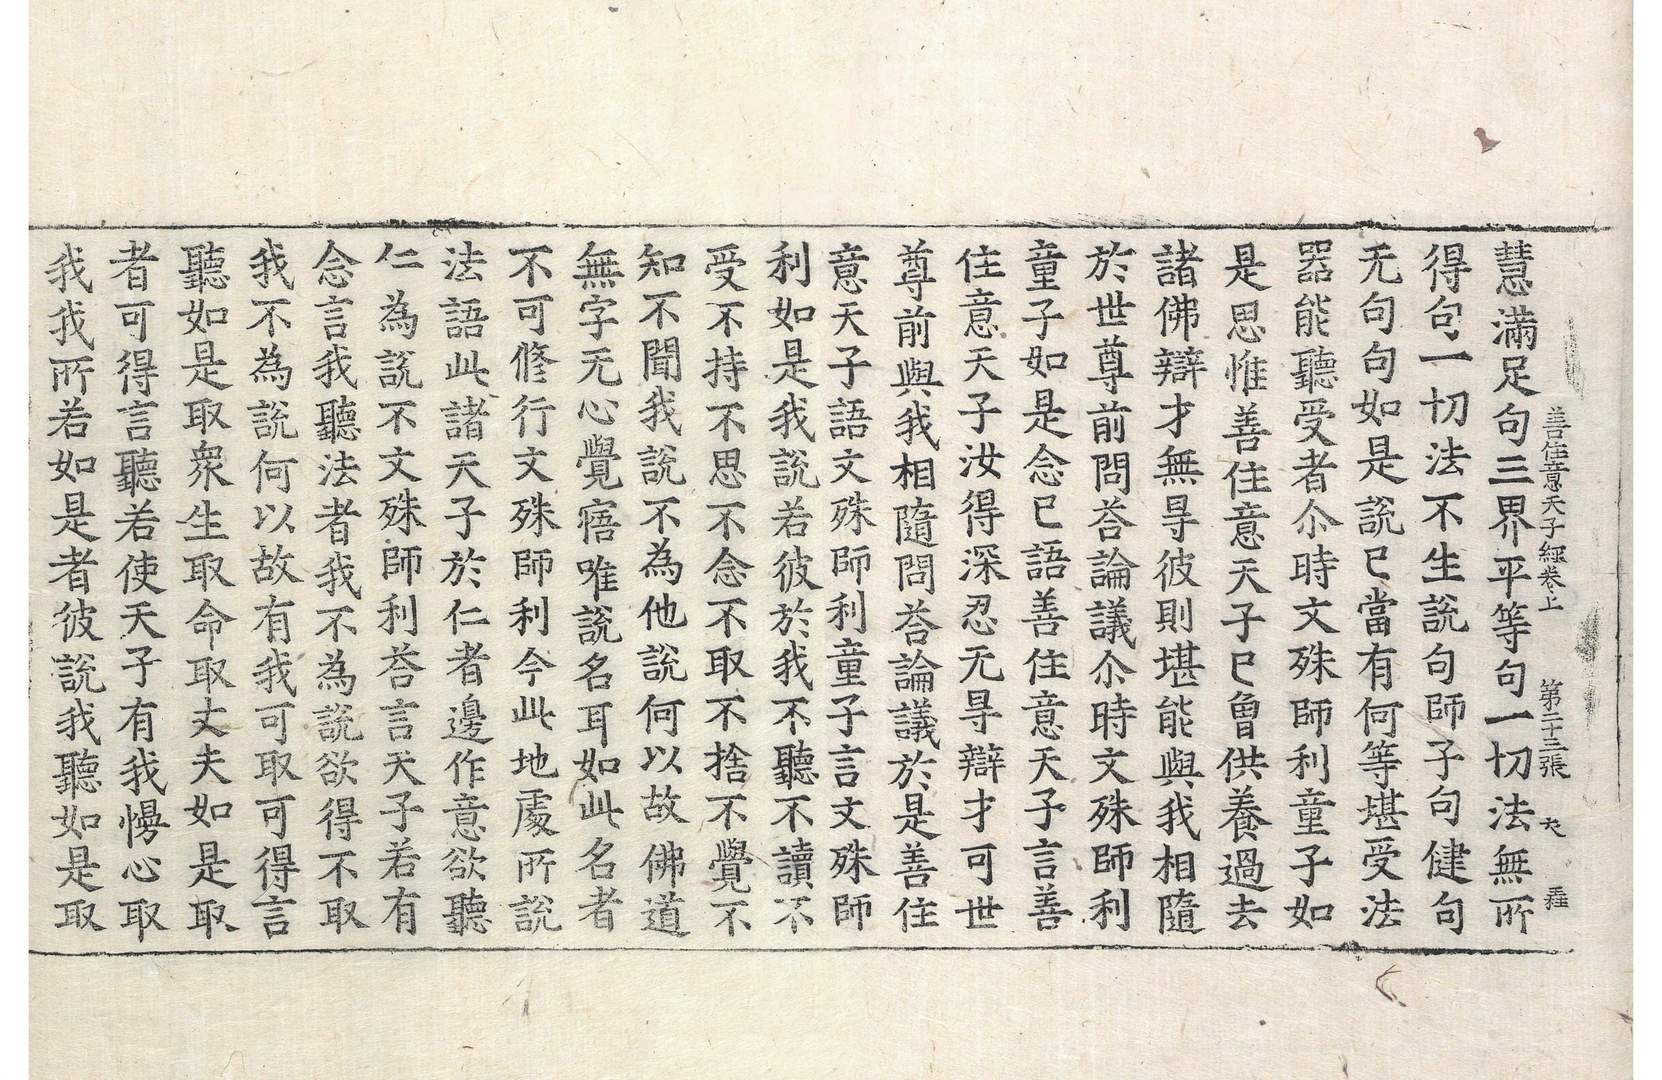 善住意天子經卷上　第二十三張
慧滿足句三界平等句一切法無所
得句一切法不生說句師子句健句
无句句如是說已當有何等堪受法
器能聽受者尒時文殊師利童子如
是思惟善住意天子已曾供養過去
諸佛辯才無㝵彼則堪能與我相隨
於世尊前問荅論議尒時文殊師利
童子如是念已語善住意天子言善
住意天子汝得深忍无㝵辯才可世
尊前與我相隨問荅論議於是善住
意天子語文殊師利童子言文殊師
利如是我說若彼於我不聽不讀不
受不持不思不念不取不捨不覺不
知不聞我說不為他說何以故佛道
無字无心覺寤唯說名耳如此名者
不可修行文殊師利今此地處所說
法語此諸天子於仁者邊作意欲聽
仁為說不文殊師利荅言天子若有
念言我聽法者我不為說欲得不取
我不為說何以故有我可取可得言
聽如是取衆生取命取丈夫如是取
者可得言聽若使天子有我慢心取
我我所若如是者彼說我聽如是取